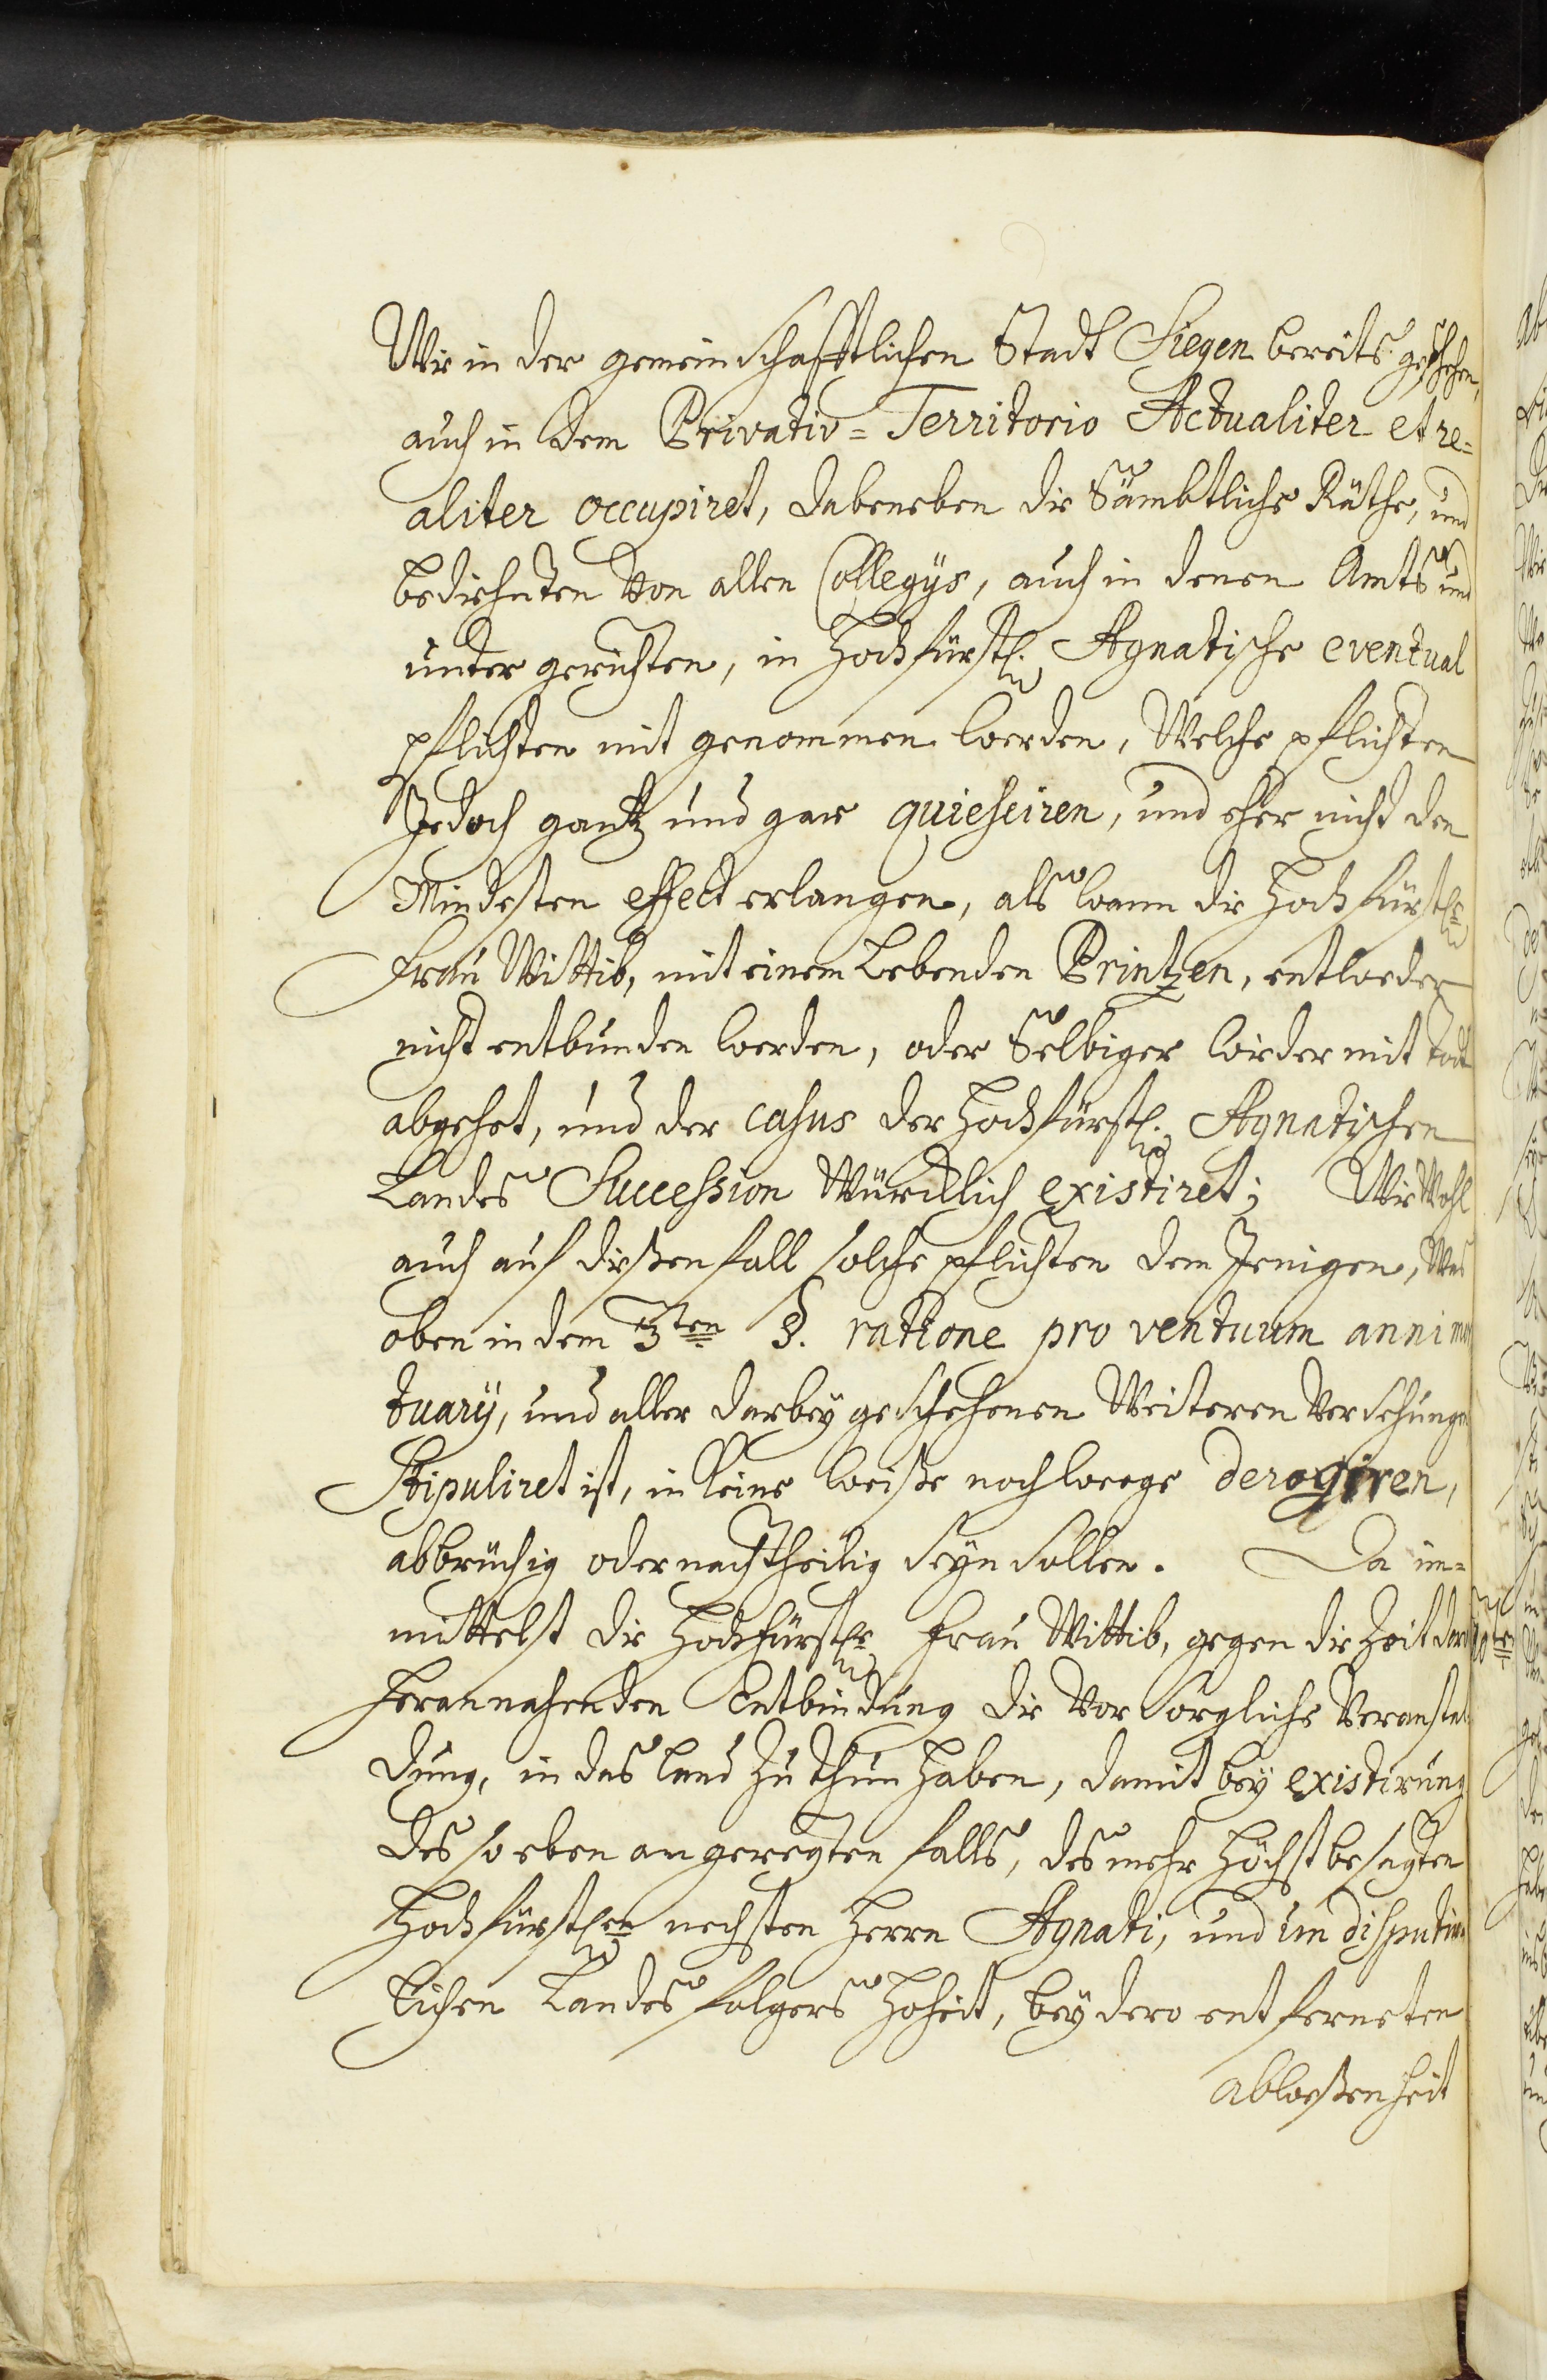 Wie in der gemeinschafftlichen Stadt Siegen bereits geschehen,
auch in dem Privativ= Territorio Actualiter et re=
aliter occupiret, dabeneben die Sämbtliche Räthe, und
bediehnten von allen Collegÿs, auch in denen Amts und
unter gerichten, in Hochfürstl. Agnatische eventual
pflichten mit genommen werden, Welche pflichten
Jedoch gantz und gar quiesciren, und eher nicht den
Mindesten effect erlangen, als wann die Hochfürstle
Frau Wittib, mit einem Lebenden Printzen, entweder
nicht entbunden werden, oder Selbiger wieder mit todt
abgehet, und der casus der Hochfürstl. Agnatischen
Landes Succession Würcklich existiret; Wie Wohl
auch auf dießen fall solche pflichten dem Jenigen, Was
oben in dem 3ten §. ratione pro ventuum anni mor
tuarÿ, und aller darbeÿ geschehenen Weiteren Versehungen
Stipuliret ist, in keine weiße noch weege derogiren,
abbrüchig oder nachtheilig seÿn sollen. Da im=
mittelst die Hochfürstle Frau Wittib, gegen die Zeit der
herannahenden Entbindung die Vorsorgliche Veranstal
dung, in das Land zu thun haben, damit beÿ existirung
des so eben angeregten falls, des mehr höchst besagten
Hochfürstlen nechsten Herrn Agnati, und in disputir
lichen Landes folgers Hoheit, beÿ dero entferneten
abweßenheit